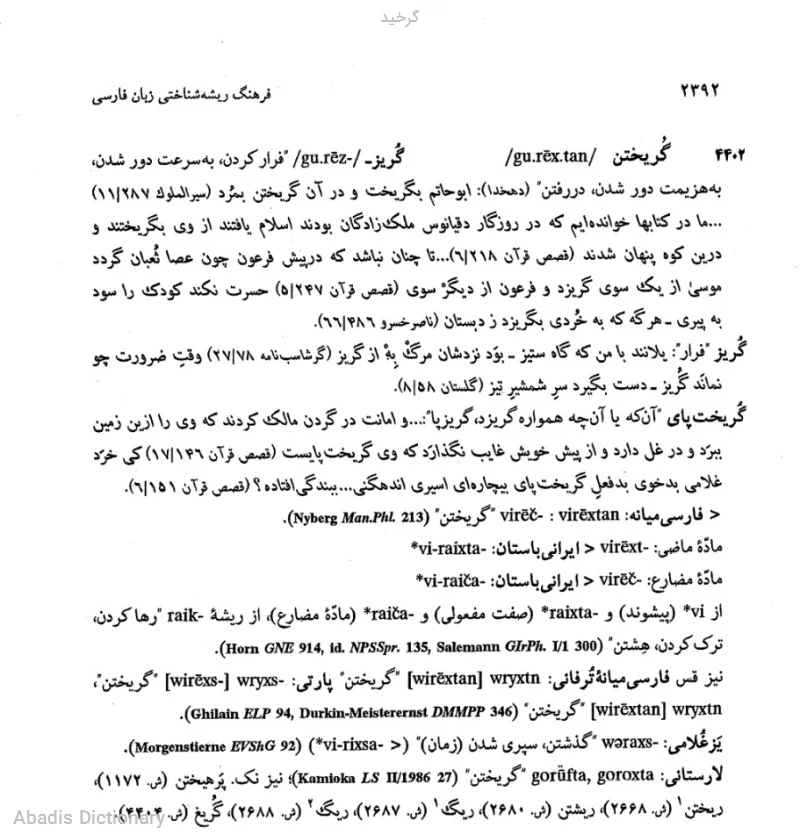 گرخید
۲۳۹۲ فرهنگ ریشه‌شناختی زبان فارسی
۴۴۰۲ گُریختن /gu.rēx.tan/ گُریز- /gu.rēz-/ "فرار کردن، به‌سرعت دور شدن،
به‌هزیمت دور شدن، دررفتن" (دهخدا): ابوحاتم بگریخت و در آن گریختن بمُرد (سیرالملوک ۱۱/۲۸۷)
...ما در کتابها خوانده‌ایم که در روزگار دقیانوس ملک‌زادگان بودند اسلام یافتند از وی بگریختند و
درین کوه پنهان شدند (قصص قرآن ۶/۲۱۸)...تا چنان نباشد که درپیش فرعون چون عصا ثُعبان گردد
موسیٰ از یک سوی گریزد و فرعون از دیگرْ سوی (قصص قرآن ۵/۲۴۷) حسرت نکند کودک را سود
به پیری ـ هرگه که به خُردی بگریزد ز دبستان (ناصرخسرو ۶۶/۴۸۶).
گُریز "فرار": یلانند با من که گاه ستیز ـ بوَد نزدشان مرگْ بِهْ از گریز (گرشاسب‌نامه ۲۷/۷۸) وقتِ ضرورت چو
نمانَد گُریز ـ دست بگیرد سرِ شمشیرِ تیز (گلستان ۸/۵۸).
گُریخت‌پای "آن‌که یا آن‌چه همواره گریزد، گریزپا":...و امانت در گردن مالک کردند که وی را ازین زمین
ببرَد و در غل دارد و از پیش خویش غایب نگذارَد که وی گریخت‌پایست (قصص قرآن ۱۷/۱۴۶) کی خرَد
غلامی بدخوی بدفعلِ گریخت‌پای بیچاره‌ای اسیری اندهگنی...ببندگی‌افتاده؟ (قصص قرآن ۶/۱۵۱).
< فارسی‌میانه: virēč- : virēxtan "گریختن" (Nyberg Man.Phl. 213).
مادّهٔ ماضی: virēxt- < ایرانی‌باستان: *vi-raixta-
مادّهٔ مضارع: virēč- < ایرانی‌باستان: *vi-raiča-
از *vi (پیشوند) و *raixta- (صفت مفعولی) و *raiča- (مادّهٔ مضارع)، از ریشهٔ raik- "رها کردن،
ترک کردن، هِشتن" (Horn GNE 914, id. NPSSpr. 135, Salemann GIrPh. I/1 300).
نیز قس فارسی‌میانهٔ تُرفانی: wryxtn [wirēxtan] "گریختن" پارتی: wryxs- [wirēxs-] "گریختن"،
wryxtn [wirēxtan] "گریختن" (Ghilain ELP 94, Durkin-Meisterernst DMMPP 346).
یَزغُلامی: wəraxs- "گذشتن، سپری شدن (زمان)" (< *vi-rixsa-) (Morgenstierne EVShG 92).
لارستانی: gorüfta, goroxta "گریختن" (Kamioka LS II/1986 27)؛ نیز نک. پَرهیختن (ش. ۱۱۷۲)،
ریختن۱ (ش. ۲۶۶۸)، ریشتن (ش. ۲۶۸۰)، ریگ۱ (ش. ۲۶۸۷)، ریگ۲ (ش. ۲۶۸۸)، گُریغ (ش. ۴۴۰۴).
Abadis Dictionary